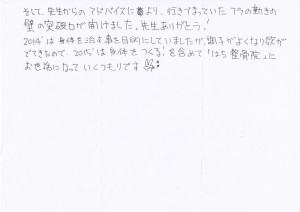 そして、先生からのアドバイスに番より、行きづまっていたフラの動きの
壁の突破口が開けました。先生ありがとう!
2014'は身体を治す事を目的にしていましたが、調子がよくなり欲が
でてきたので、2015'は身体をつくる!を含めて「はち整骨院」に
お世話になっていくつもりです